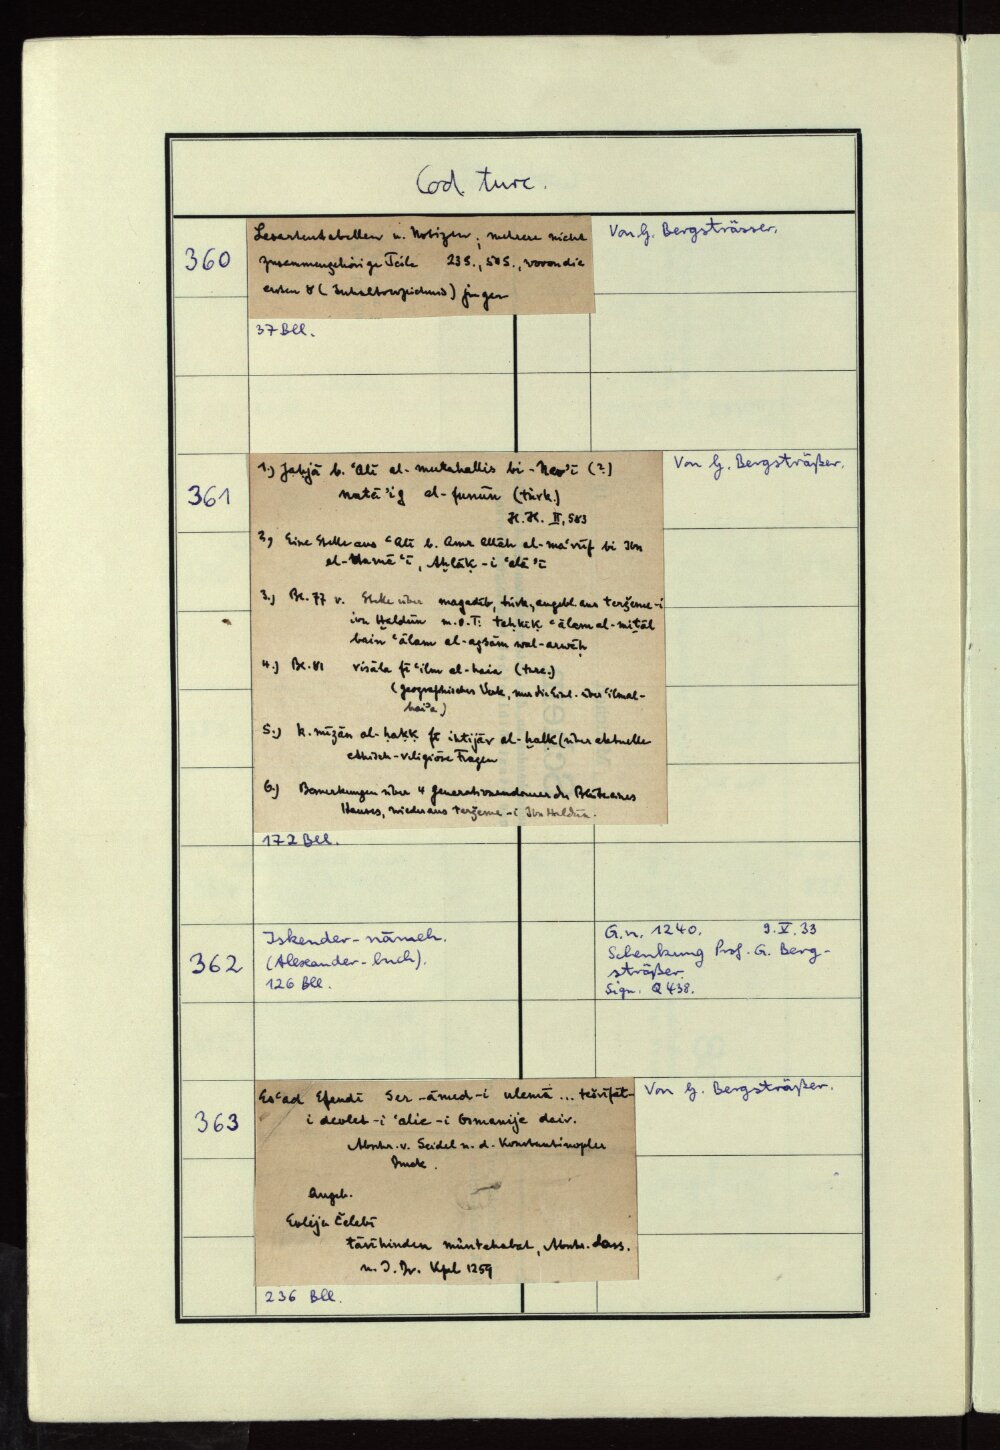 Cod. turc.
360
Lesartentabellen u. Notizen; mehrere nicht
zusammengehörige Teile 23 S., 50 S., wovon die
ersten 8 (Inhaltsverzeichnis) jünger
37 Bll.
Von G. Bergsträsser.
361
1.) Jaḥjā b. ʿAlī al-mutaḫalliṣ bi-Nevʿī (?)
natāʾiǧ al-funūn (türk.)
H.H. II, 583
2.) Eine Stelle aus ʿAlī b. Amr Allāh al-maʿrūf bi Ibn
el-Ḥannāʾī, Aḫlāḳ-i ʿalāʾī
3.) Bl. 77 v. Stelle über magadīb, türk., angebl. aus terǧeme-i
ibn Ḫaldūn m. d. T: taḥḳīḳ ʿālam al-miṯāl
bain ʿālam al-aǧsām wal-arwāḥ
4.) Bl. 81 risāla fī ʿilm al-haia (turc.)
(geographisches Werk, nur die Einl. über ʿilm al-
haiʾa)
5.) k. mīzān al-ḥaḳḳ fī iḫtijār al-ḥaḳḳ (über aktuelle
ethisch-religiöse Fragen
6.) Bemerkungen über 4 Generationendauer der Blüte eines
Hauses, wieder aus terǧeme-i Ibn Haldūn.
172 Bll.
Von G. Bergsträßer.
362
Iskender-nāmeh.
(Alexander-buch).
126 Bll.
G.n. 1240. 9.X.33
Schenkung Prof. G. Berg-
sträßer.
Sign. Q 438.
363
Esʿad Efendī Ser-āmed-i ulemā ... tešrīfāt-
i devlet-i ʿalīe-i Osmanije dair.
Abschr. v. Seidel n. d. Konstantinopler
Druck.
Angeb.
Evlija Čelebī
tārīhinden müntehabat, Abschr. dess.
n. d. Dr. Kpl 1259
236 Bll.
Von G. Bergsträßer.